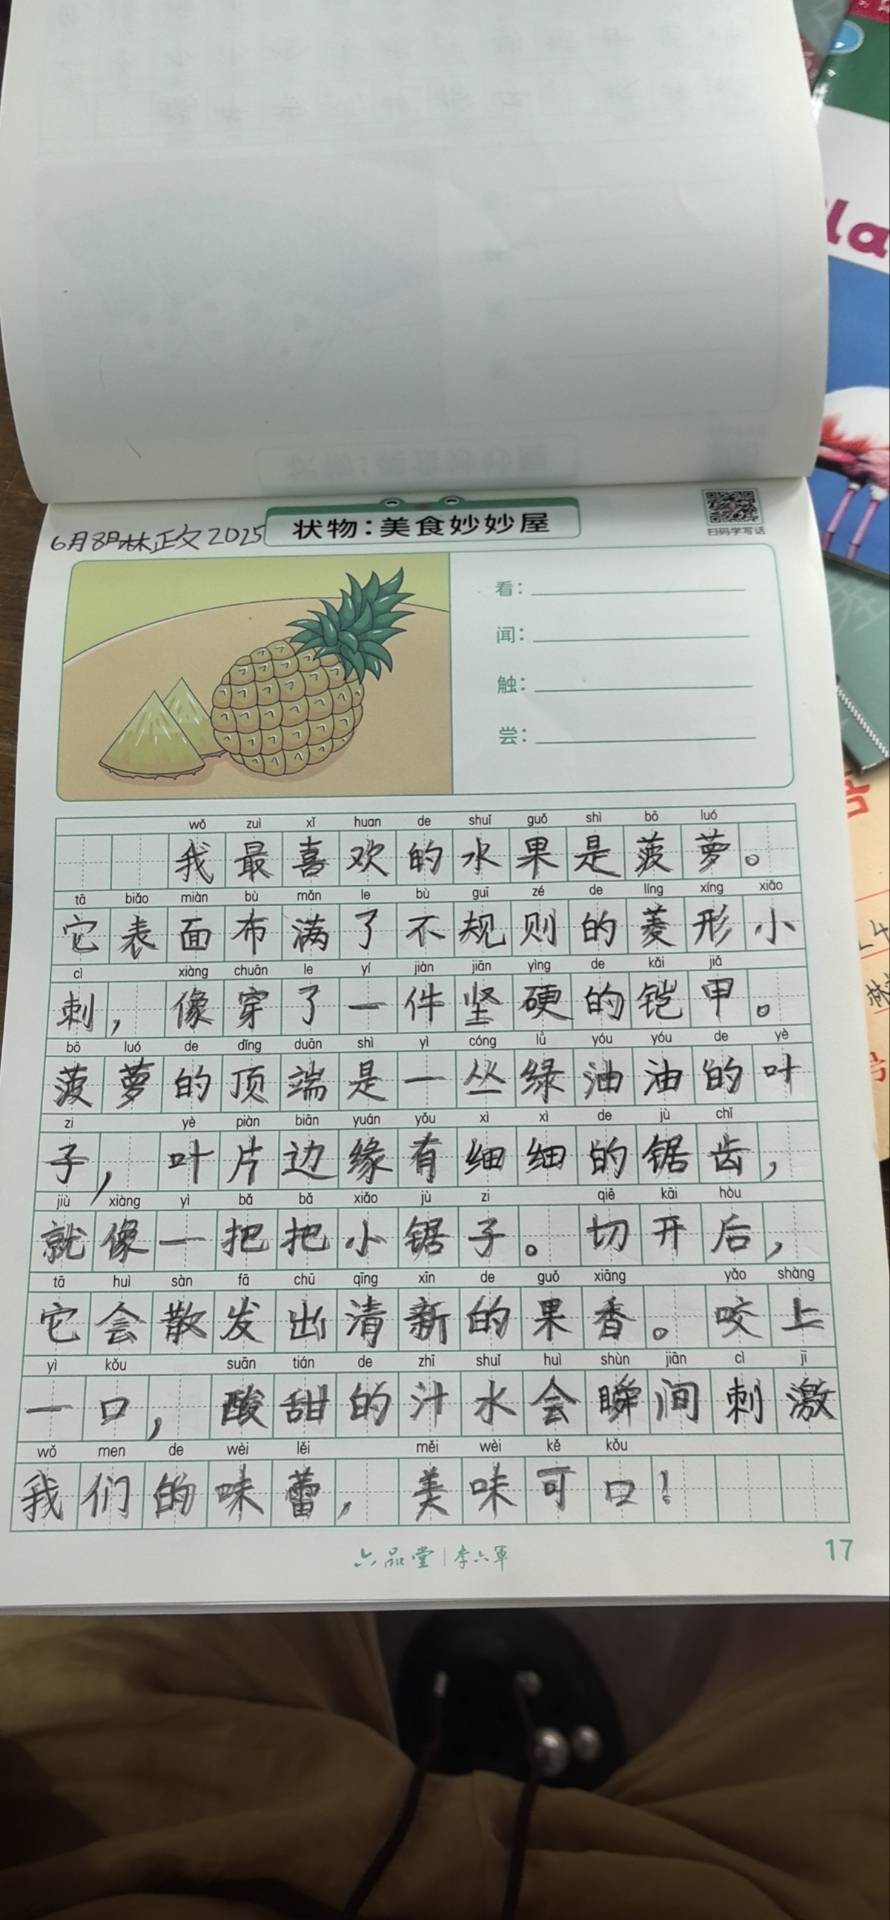 6月8日林正文2025
状物：美食妙妙屋
扫码学写话
看：
闻：
触：
尝：
wǒ zuì xǐ huan de shuǐ guǒ shì bō luó
我最喜欢的水果是菠萝。
tā biǎo miàn bù mǎn le bù guī zé de líng xíng xiǎo
它表面布满了不规则的菱形小
cì xiàng chuān le yí jiàn jiān yìng de kǎi jiǎ
刺，像穿了一件坚硬的铠甲。
bō luó de dǐng duān shì yì cóng lǜ yóu yóu de yè
菠萝的顶端是一丛绿油油的叶
zi yè piàn biān yuán yǒu xì xì de jù chǐ
子，叶片边缘有细细的锯齿，
jiù xiàng yì bǎ bǎ xiǎo jù zi qiē kāi hòu
就像一把把小锯子。切开后，
tā huì sàn fā chū qīng xīn de guǒ xiāng yǎo shàng
它会散发出清新的果香。咬上
yì kǒu suān tián de zhī shuǐ huì shùn jiān cì jī
一口，酸甜的汁水会瞬间刺激
wǒ men de wèi lěi měi wèi kě kǒu
我们的味蕾，美味可口！
六品堂|李六军
17
la